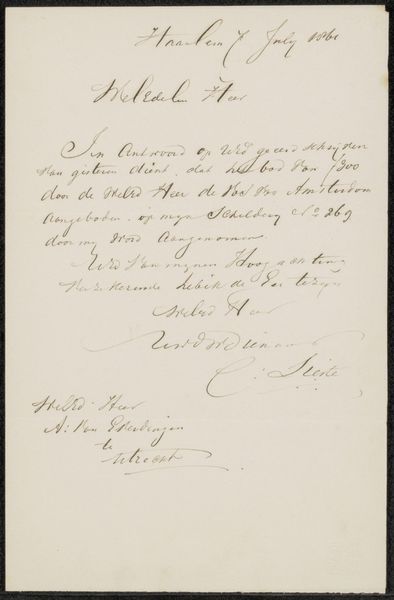 Haarlem 7 July 1861
WelEdelen Heer
In Antwoord op UEd geeerd schrijven
van gisteren dient, dat het bod van ƒ300
door de WelEd Heer de Vos van Amsterdam
aangeboden op mijn Schilderij No 269
door my word aangenomen
UEd van mynen Hoogachting
verzekerende heb ik de Eer te zijn
WelEd Heer
UwEdWDienaar
C: Lieste
WelEd Heer
A: Van Everdingen
te
Utrecht